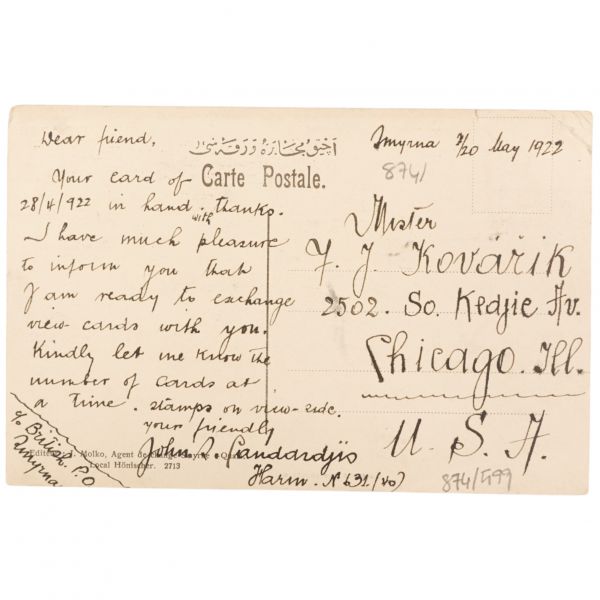 Dear friend,
آچيق مخابره ورقه سى
Carte Postale.
Your card of
28/4/922 in hand with thanks.
I have much pleasure
to inform you that
I am ready to exchange
view-cards with you.
Kindly let me know the
number of cards at
a time. stamps on view-side.
your friendly
John
Harm. N 631/
c/o British P.O
Smyrna
Editeur J. Molko, Agent de
Local Hönischer. 2713
Smyrna 7/20 May 1922
874/
Mister
F. J. Kovářik
2502. So. Kedjie Av.
Chicago. Ill.
U. S. A.
874/599